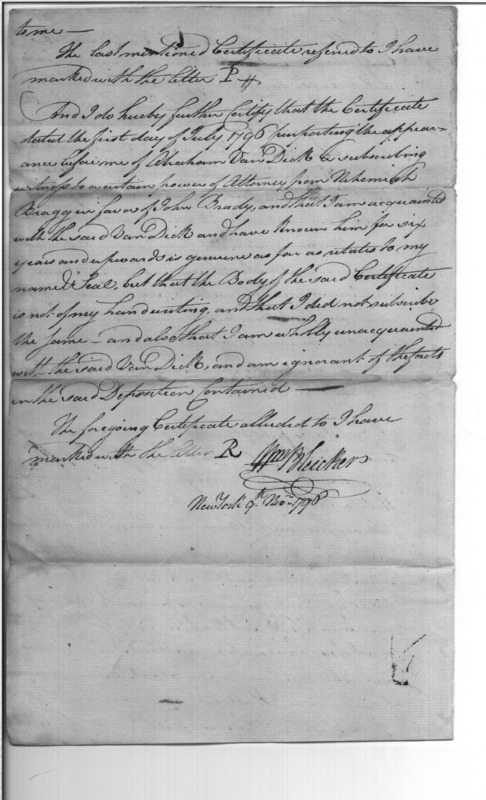 to me —
The last mentioned Certificate referred to I have
marked with the letter P
And I do hereby further Certify that the Certificate
dated the first day of July 1796 purporting the appear-
ance before me of Abraham Van Dick a subscribing
witness to a certain power of Attorney from Nehemiah
Bragg in favor of John Brady, and that I am acquainted
with the said Van Dick and have known him for six
years and upwards is genuine as far as relates to my
name & Seal, but that the Body of the said Certificate
is not of my hand writing, and that I did not subscribe
the same — and also that I am wholly unacquainted
with the said Van Dick, and am ignorant of the facts
in the said Deposition Contained —
The foregoing Certificate alluded to I have
marked with the letter R Wm Bleicker
New York 9th Nov. 1798